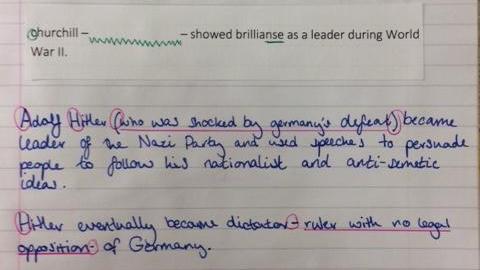 churchill – – showed brillianse as a leader during World
War II.
Adolf Hitler (who was shocked by germany's defeat) became
leader of the Nazi Party and used speeches to persuade
people to follow his nationalist and anti-semetic
ideas.
Hitler eventually became dictator - ruler with no legal
opposition - of Germany.